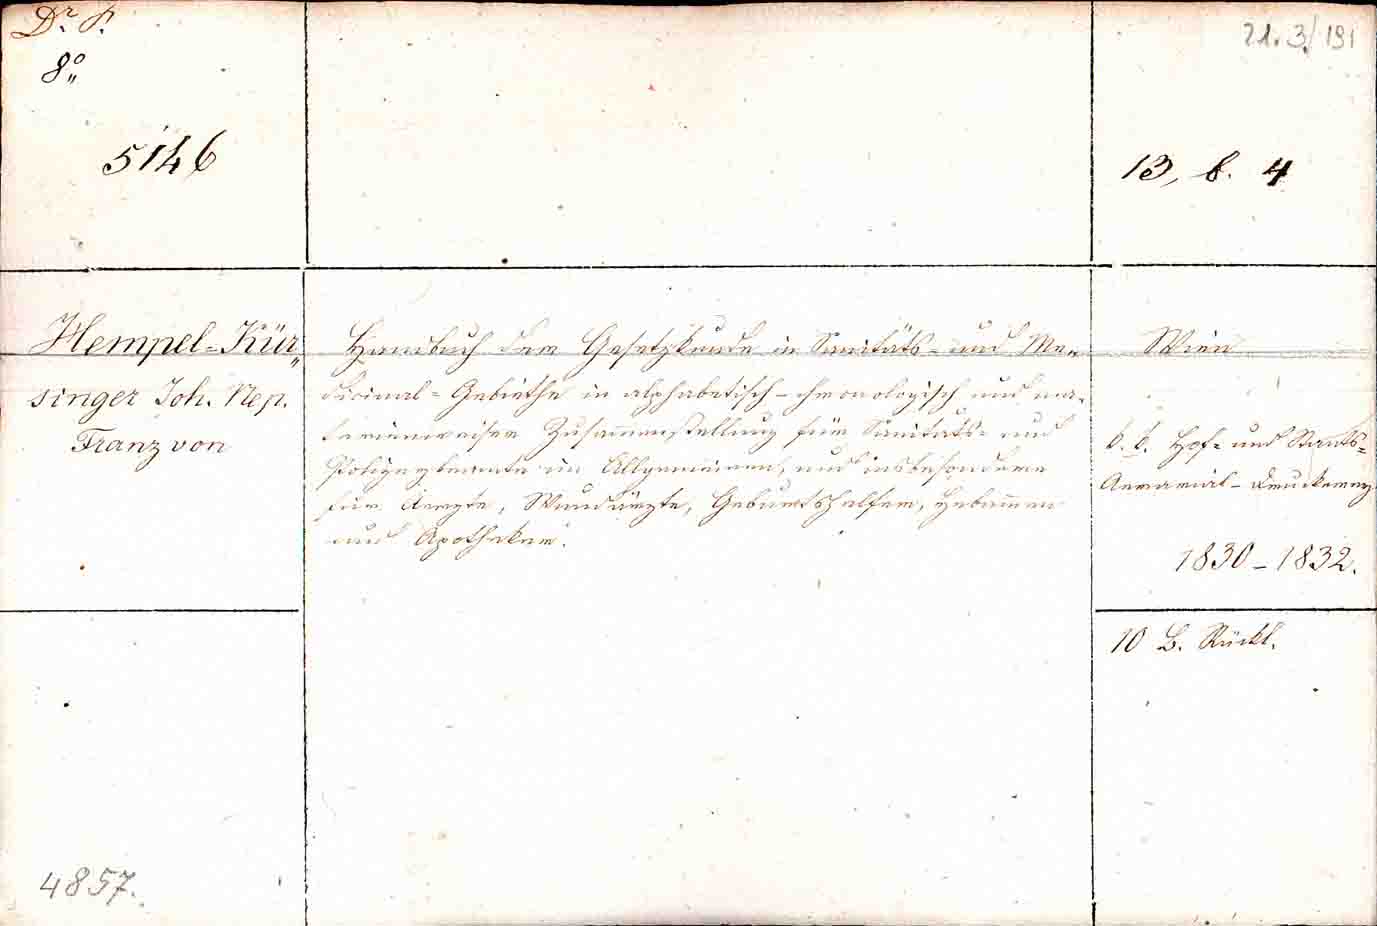 Dr. P.
8°
5146
21. 3/191
13, b. 4
Hempel=Kür„
singer Joh. Nep.
Franz von
Handbuch der Gesetzkunde in Sanitäts- und Me„
dicinal=Gebiethe in alphabetisch-chronologisch und ma„
terienweiser Zusam̅enstellung für Sanitäts- und
Polizeybeamte im Allgemeinen, und insbesondere
für Aerzte, Wundärzte, Geburtshelfer, Hebam̅en
und Apotheker.
Wien
k. k. Hof= und Staats=
Aerarial-Druckerey
1830-1832.
10 B. Rückl.
4857.